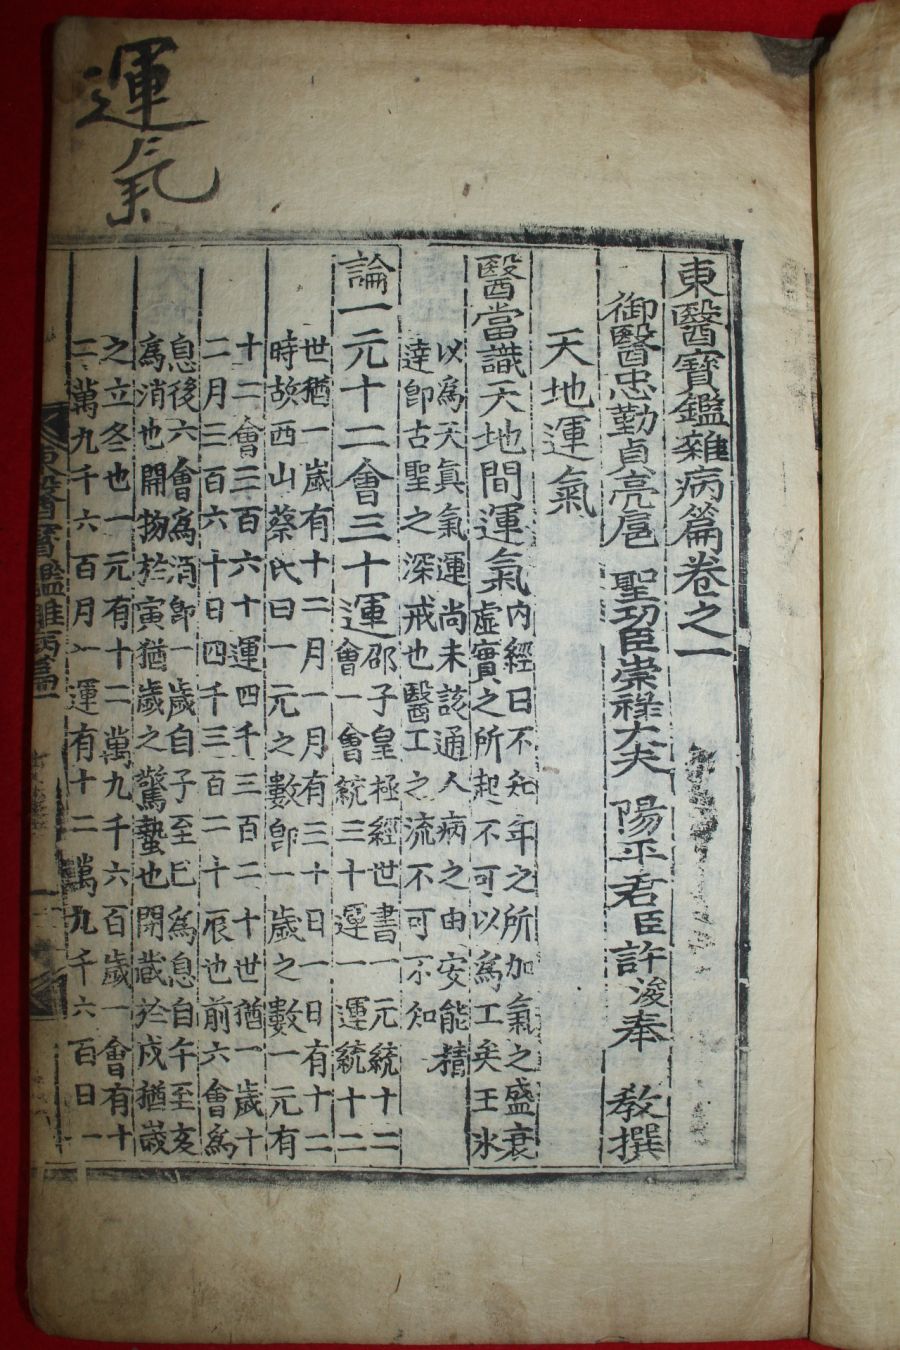 運氣
東醫寶鑑雜病篇卷之一
御醫忠勤貞亮扈 聖功臣崇祿大夫 陽平君臣許浚奉 敎撰
天地運氣
醫當識天地間運氣 內經曰不知年之所加氣之盛衰
虛實之所起不可以爲工矣王氷
以爲天眞氣運尙未該通人病之由安能精
達卽古聖之深戒也醫工之流不可不知
論一元十二會三十運 邵子皇極經世書一元統十二
會一會統三十運一運統十二
世猶一歲有十二月一月有三十日一日有十二
時故西山蔡氏曰一元之數卽一歲之數一元有
十二會三百六十運四千三百二十世猶一歲十
二月三百六十日四千三百二十辰也前六會爲
息後六會爲消卽一歲自子至巳爲息自午至亥
爲消也開物於寅猶歲之驚蟄也閉藏於戌猶歲
之立冬也一元有十二萬九千六百歲一會有十
二萬九千六百月一運有十二萬九千六百日一
東醫寶鑑雜病篇一